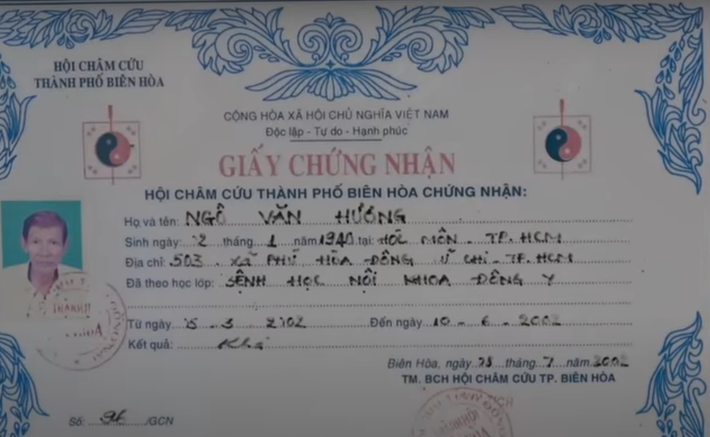 HỘI CHÂM CỨU
THÀNH PHỐ BIÊN HÒA
CỘNG HÒA XÃ HỘI CHỦ NGHĨA VIỆT NAM
Độc lập - Tự do - Hạnh phúc
GIẤY CHỨNG NHẬN
HỘI CHÂM CỨU THÀNH PHỐ BIÊN HÒA CHỨNG NHẬN:
Họ và tên: NGÔ VĂN HƯỚNG
Sinh ngày: 2 tháng 1 năm 1940 tại: HÓC MÔN - TP. HCM
Địa chỉ: 503 XÃ PHÚ HÒA ĐÔNG CHI - TP. HCM
Đã theo học lớp: BỆNH HỌC NỘI KHOA ĐÔNG Y
Từ ngày 5 - 3 Đến ngày 10 - 6 - 2002
Kết quả: Khá
Biên Hòa, ngày tháng 7 năm 2002
TM. BCH HỘI CHÂM CỨU TP. BIÊN HÒA
Số: /GCN